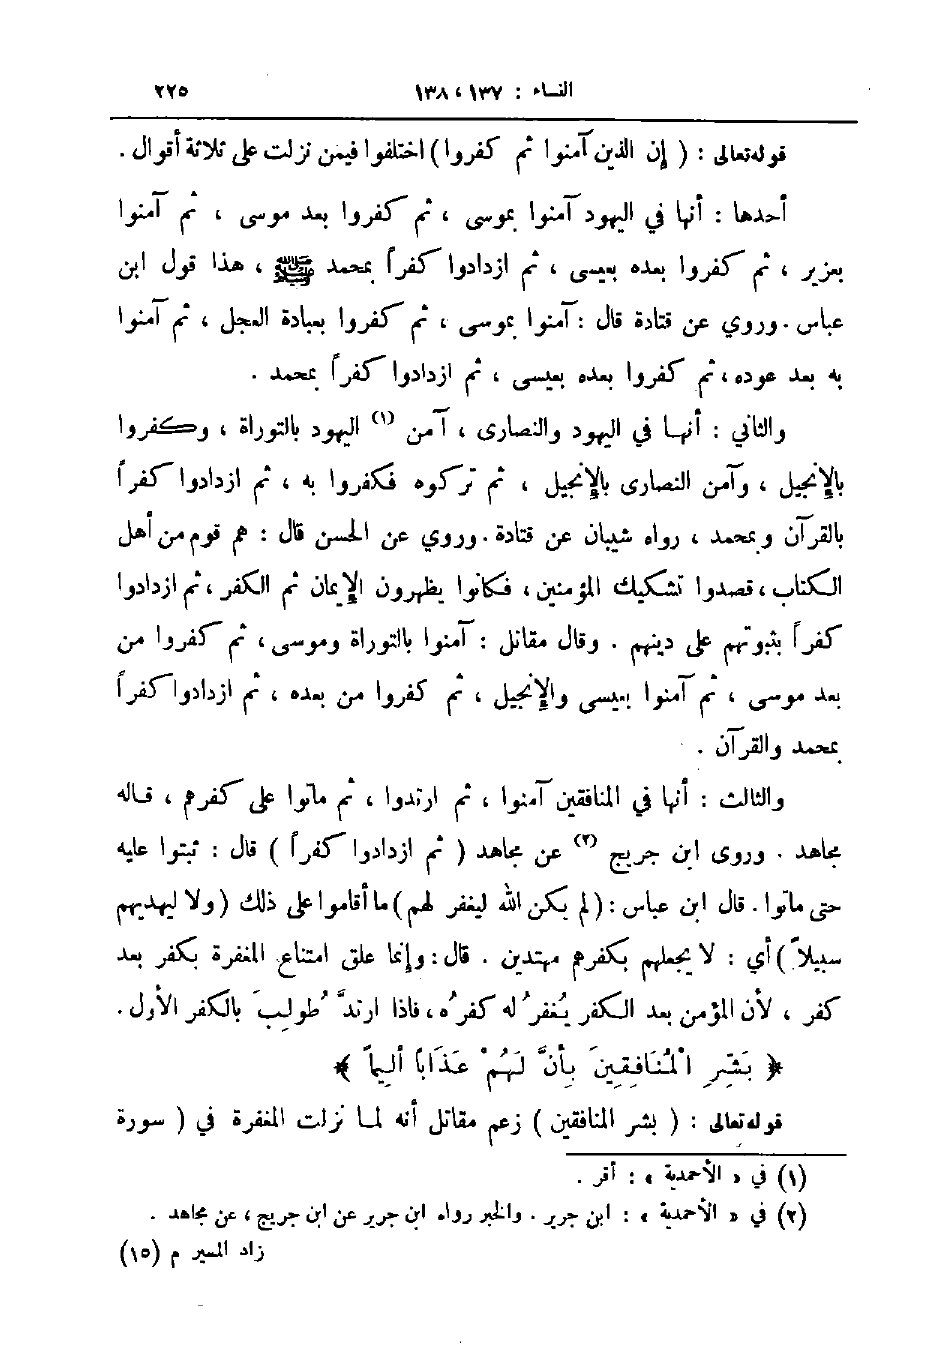 النساء : ١٣٧ ، ١٣٨ ٢٢٥
قوله تعالى : ( إن الذين آمنوا ثم كفروا ) اختلفوا فيمن نزلت على ثلاثة أقوال .
أحدها : أنها في اليهود آمنوا بموسى ، ثم كفروا بعد موسى ، ثم آمنوا
بعزير ، ثم كفروا بعده بعيسى ، ثم ازدادوا كفراً بمحمد ﷺ ، هذا قول ابن
عباس . وروي عن قتادة قال : آمنوا بموسى ، ثم كفروا بعبادة العجل ، ثم آمنوا
به بعد عوده ، ثم كفروا بعده بعيسى ، ثم ازدادوا كفراً بمحمد .
والثاني : أنهـا في اليهود والنصارى ، آمن (١) اليهود بالتوراة ، وكفروا
بالإنجيل ، وآمن النصارى بالإنجيل ، ثم تركوه فكفروا به ، ثم ازدادوا كفراً
بالقرآن وبمحمد ، رواه شيبان عن قتادة . وروي عن الحسن قال : هم قوم من أهل
الكتاب ، قصدوا تشكيك المؤمنين ، فكانوا يظهرون الإيمان ثم الكفر ، ثم ازدادوا
كفراً بثبوتهم على دينهم . وقال مقاتل : آمنوا بالتوراة وموسى ، ثم كفروا من
بعد موسى ، ثم آمنوا بعيسى والإنجيل ، ثم كفروا من بعده ، ثم ازدادوا كفراً
بمحمد والقرآن .
والثالث : أنها في المنافقين آمنوا ، ثم ارتدوا ، ثم ماتوا على كفرهم ، قاله
مجاهد . وروى ابن جريج (٢) عن مجاهد ( ثم ازدادوا كفراً ) قال : ثبتوا عليه
حتى ماتوا . قال ابن عباس : ( لم يكن الله ليغفر لهم ) ما أقاموا على ذلك ( ولا ليهديهم
سبيلاً ) أي : لا يجعلهم بكفرهم مهتدين . قال : وإنما علق امتناع المغفرة بكفر بعد
كفر ، لأن المؤمن بعد الكفر يُغفرُ له كفرُه ، فاذا ارتدَّ طُولِبَ بالكفر الأول .
﴿ بَشِّرِ الْمُنَافِقِينَ بِأَنَّ لَهُمْ عَذَاباً أَلِيماً ﴾
قوله تعالى : ( بشر المنافقين ) زعم مقاتل أنه لمـا نزلت المغفرة في ( سورة
(١) في « الأحمدية » : أقر .
(٢) في « الأحمدية » : ابن جرير . والخبر رواه ابن جرير عن ابن جريج ، عن مجاهد .
زاد المسير م (١٥)